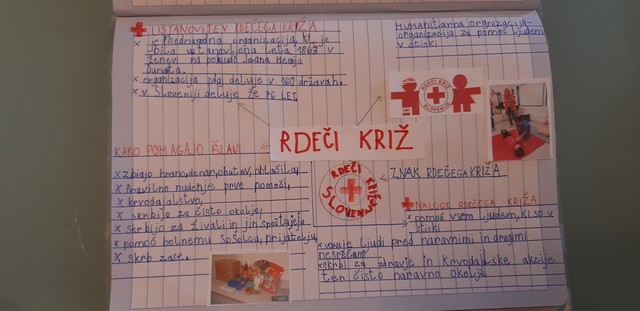 USTANOVITEV RDEČEGA KRIŽA
x je mednarodna organizacija, ki je
bila ustanovljena leta 1863 v
Ženevi na pobudo Jeana Henrija
Dunata.
x organizacija zdaj deluje v 160 državah.
x v Sloveniji deluje že 76 LET
HUMANITARNA ORGANIZACIJA-
organizacija za pomoč ljudem
v stiski
RDEČI KRIŽ
SLOVENIJE
RDEČI KRIŽ
KAKO POMAGAJO ČLANI
x zbirajo hrano, denar, obutev, oblačila,
x pravilno nudenje prve pomoči,
x krvodajalstvo,
x skrbijo za čisto okolje,
x skrbijo za živali in jih spoštujejo
x pomoč bolnemu sošolcu, prijatelju,
x skrb zase.
RDEČI KRIŽ
SLOVENIJE
ZNAK RDEČEGA KRIŽA
NALOGE RDEČEGA KRIŽA
x pomoč vsem ljudem, ki so v
stiski
x varuje ljudi pred naravnimi in drugimi
nesrečami
x skrbi za zdravje in krvodajalske akcije
ter čisto naravno okolje